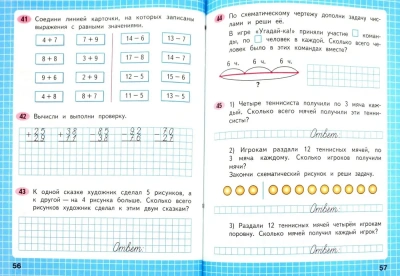 41 Соедини линией карточки, на которых записаны
выражения с равными значениями.
4 + 7 7 + 9 14 − 6 13 − 7
8 + 8 3 + 9 17 − 8 14 − 7
9 + 6 2 + 9 12 − 5 15 − 6
4 + 8 8 + 7 11 − 5 13 − 5
42 Вычисли и выполни проверку.
43 К одной сказке художник сделал 5 рисунков, а
к другой — на 4 рисунка больше. Сколько всего
рисунков художник сделал к этим двум сказкам?
Ответ
56
По схематическому чертежу дополни задачу чис-
лами и реши её.
В игре «Угадай-ка!» приняли участие
ды, по человек в каждой. Сколько всего че-
ловек было в этих командах вместе?
6 ч. 6 ч. 6 ч.
?
45 1) Четыре теннисиста получили по 3 мяча каж-
дый. Сколько всего мячей получили эти тенни-
систы?
Ответ
2) Игрокам раздали 12 теннисных мячей, по
3 мяча каждому. Сколько игроков получили
мячи?
Закончи схематический рисунок и реши задачу.
Ответ
3) Раздали 12 теннисных мячей четырём игрокам
поровну. Сколько мячей получил каждый игрок?
Ответ
57